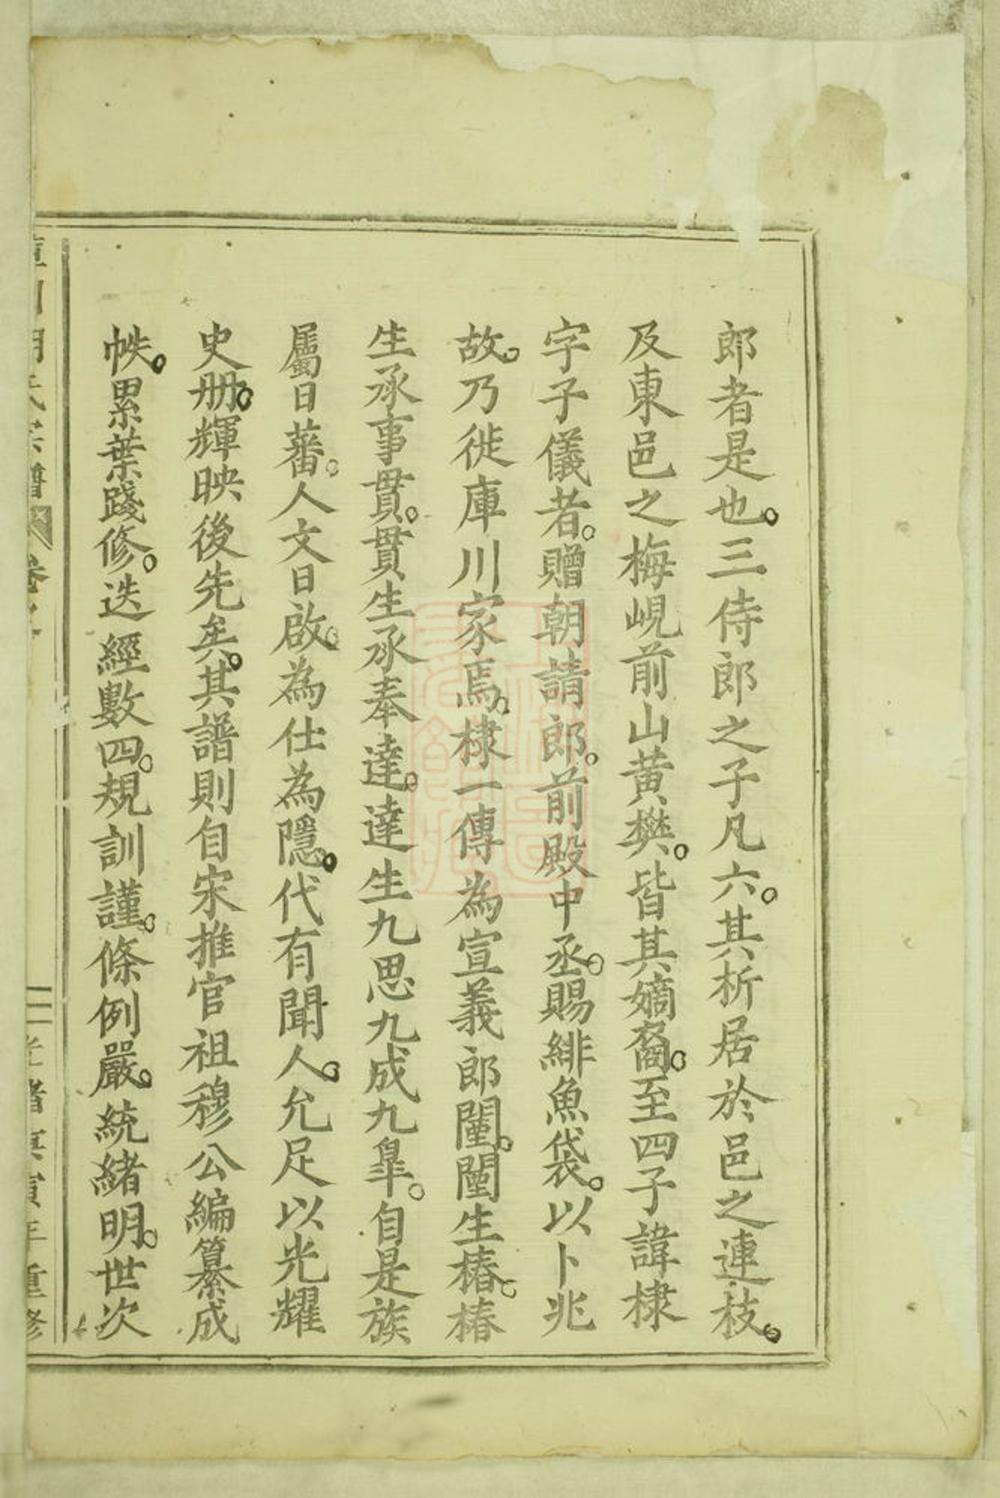 郎者是也。三侍郎之子凡六。其析居於邑之連枝。
及東邑之梅峴前山黃樊。皆其嫡裔。至四子諱棣
字子儀者。贈朝請郎。前殿中丞。賜緋魚袋。以卜兆
故。乃徙庫川家焉。棣一傳為宣義郎闉。闉生椿。椿
生承事貫。貫生承奉達。達生九思九成九臯。自是族
屬日蕃。人文日啟。為仕為隱。代有聞人。允足以光耀
史册。輝映後先矣。其譜則自宋推官祖穆公編纂成
帙。累葉踐修。迭經數四。規訓謹。條例嚴。統緒明。世次
氏宗譜 卷之 光緒庚寅年重修